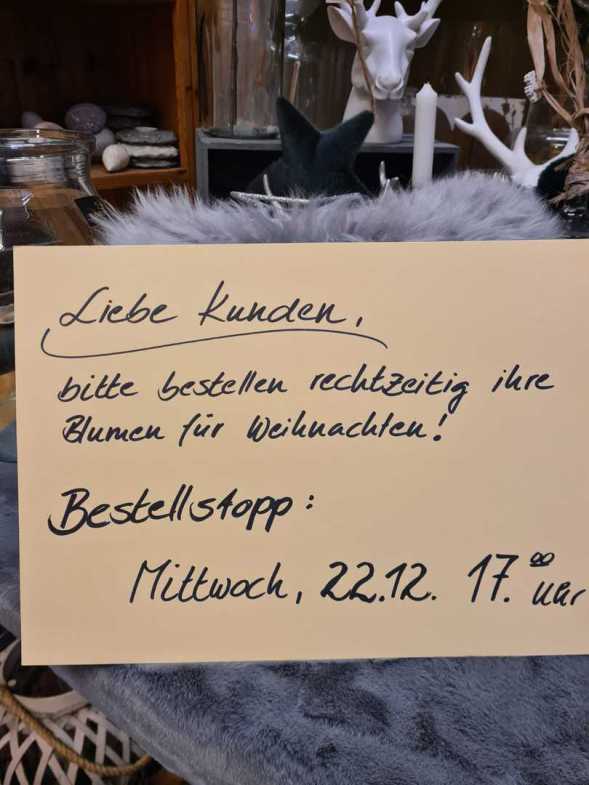 Liebe Kunden,
bitte bestellen rechtzeitig ihre
Blumen für Weihnachten!
Bestellstopp:
Mittwoch, 22.12. 17.00 Uhr